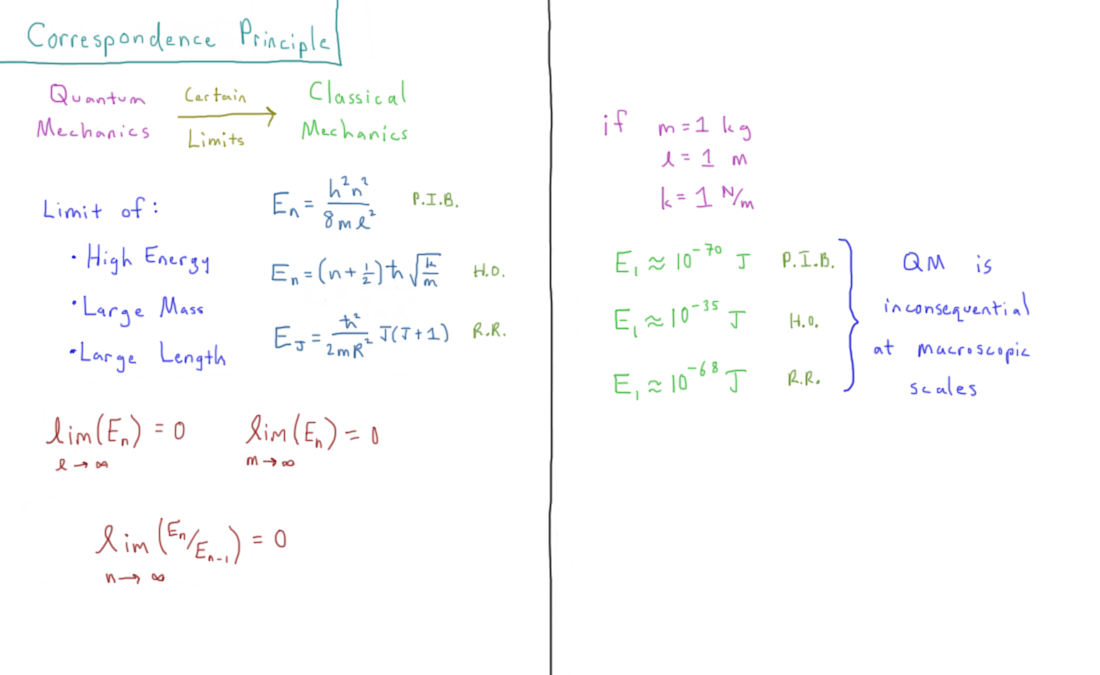 Correspondence Principle
Quantum Mechanics
Certain Limits
Classical Mechanics
Limit of:
• High Energy
• Large Mass
• Large Length
Eₙ = h²n² / 8ml² P.I.B.
Eₙ = (n + ½)ħ √(k/m) H.O.
E_J = ħ² / 2mR² J(J+1) R.R.
lim(Eₙ) = 0
l → ∞
lim(Eₙ) = 0
m → ∞
lim(Eₙ/Eₙ₋₁) = 0
n → ∞
if m = 1 kg
l = 1 m
k = 1 N/m
E₁ ≈ 10⁻⁷⁰ J P.I.B.
E₁ ≈ 10⁻³⁵ J H.O.
E₁ ≈ 10⁻⁶⁸ J R.R.
QM is
inconsequential
at macroscopic
scales